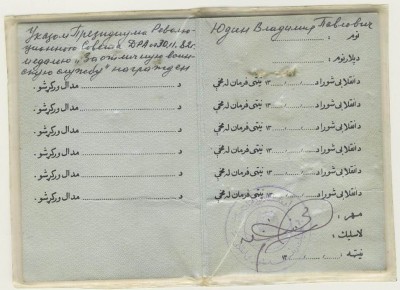 Указом Президиума Револю-
ционного Совета ДРА от 30.11.82г.
медалью „За отличную воин-
скую службу" награжден
د ........................ مدال ورکړشو .
د ........................ مدال ورکړشو .
د ........................ مدال ورکړشو .
د ........................ مدال ورکړشو .
د ........................ مدال ورکړشو .
د ........................ مدال ورکړشو .
Юдин Владимир Павлович
نوم :
د پلار نوم :
دانقلابی شورا د ...../...../ ۱۳ نیټې فرمان له مخې
دانقلابی شورا د ...../...../ ۱۳ نیټې فرمان له مخې
دانقلابی شورا د ...../...../ ۱۳ نیټې فرمان له مخې
دانقلابی شورا د ...../...../ ۱۳ نیټې فرمان له مخې
دانقلابی شورا د ...../...../ ۱۳ نیټې فرمان له مخې
دانقلابی شورا د ...../...../ ۱۳ نیټې فرمان له مخې
مهر :
لاسلیک :
نیټه ...../...../ ۱۳